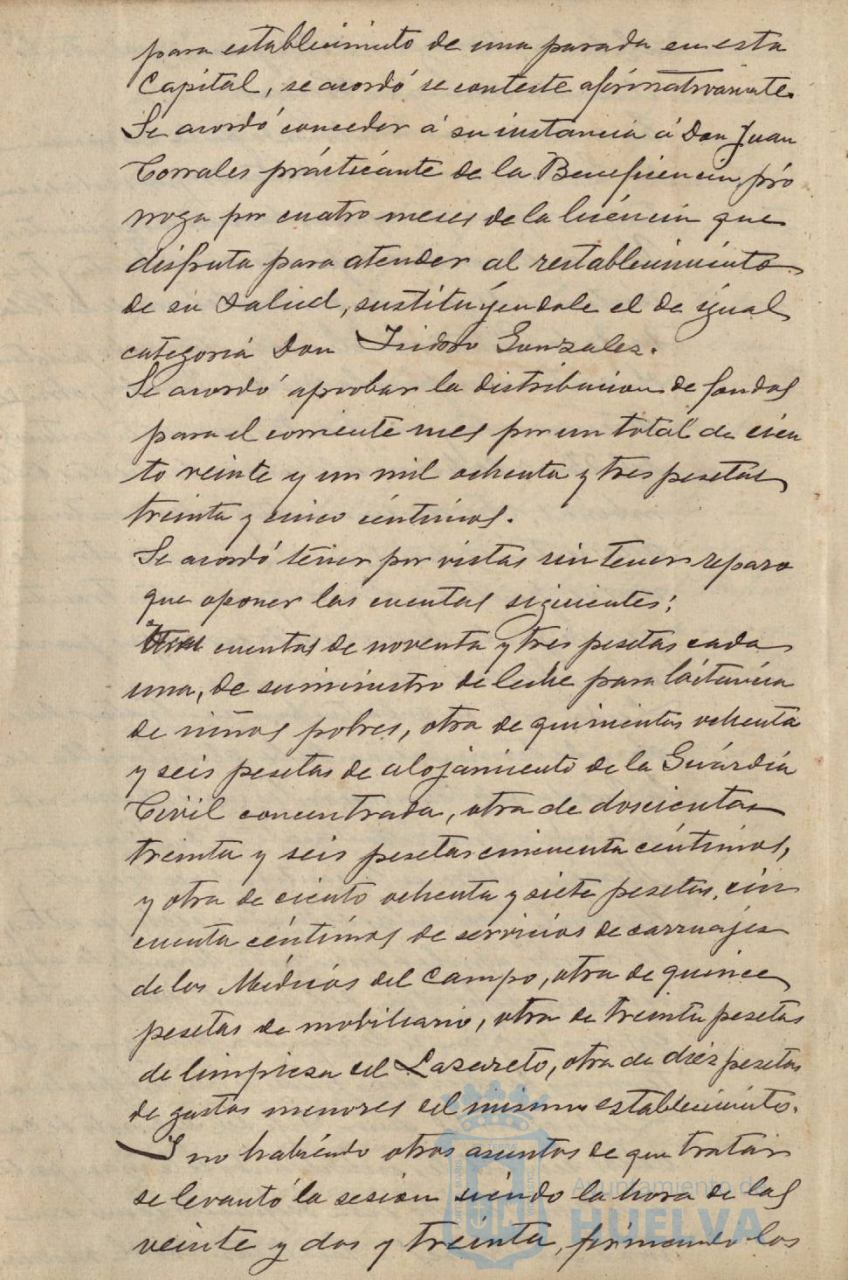 para establecimiento de una parada en esta
Capital, se acordó se conteste afirmativamente.
Se acordó conceder á su instancia á Don Juan
Corrales prácticante de la Beneficencia, pró
rroga por cuatro meses de la licencia que
disfruta para atender al restablecimiento
de su salud, sustituyendole el de igual
categoria Don Isidoro Gonzalez.
Se acordó aprobar la distribucion de fondos
para el corriente mes por un total de cien
to veinte y un mil ochenta y tres pesetas
treinta y cinco céntimos.
Se acordó tener por vistas sin tener reparo
que oponer las cuentas siguientes;
cuentas de noventa y tres pesetas cada
una, de suministro de leche para lactancia
de niños pobres, otra de quinientas ochenta
y seis pesetas de alojamiento de la Guardia
Civil concentrada, otra de doscientas
treinta y seis pesetas cincuenta céntimos,
y otra de ciento ochenta y siete pesetas, cin
cuenta céntimos de servicios de carruajes
de los Médicos del campo, otra de quince
pesetas de mobiliario, otra de treinta pesetas
de limpiesa del Lazareto, otra de diez pesetas
de gastos menores del mismo establecimiento.
Y no habiendo otros asuntos de que tratar
se levantó la sesion siendo la hora de las
veinte y dos y treinta, firmando los
Ayuntamiento de
HUELVA